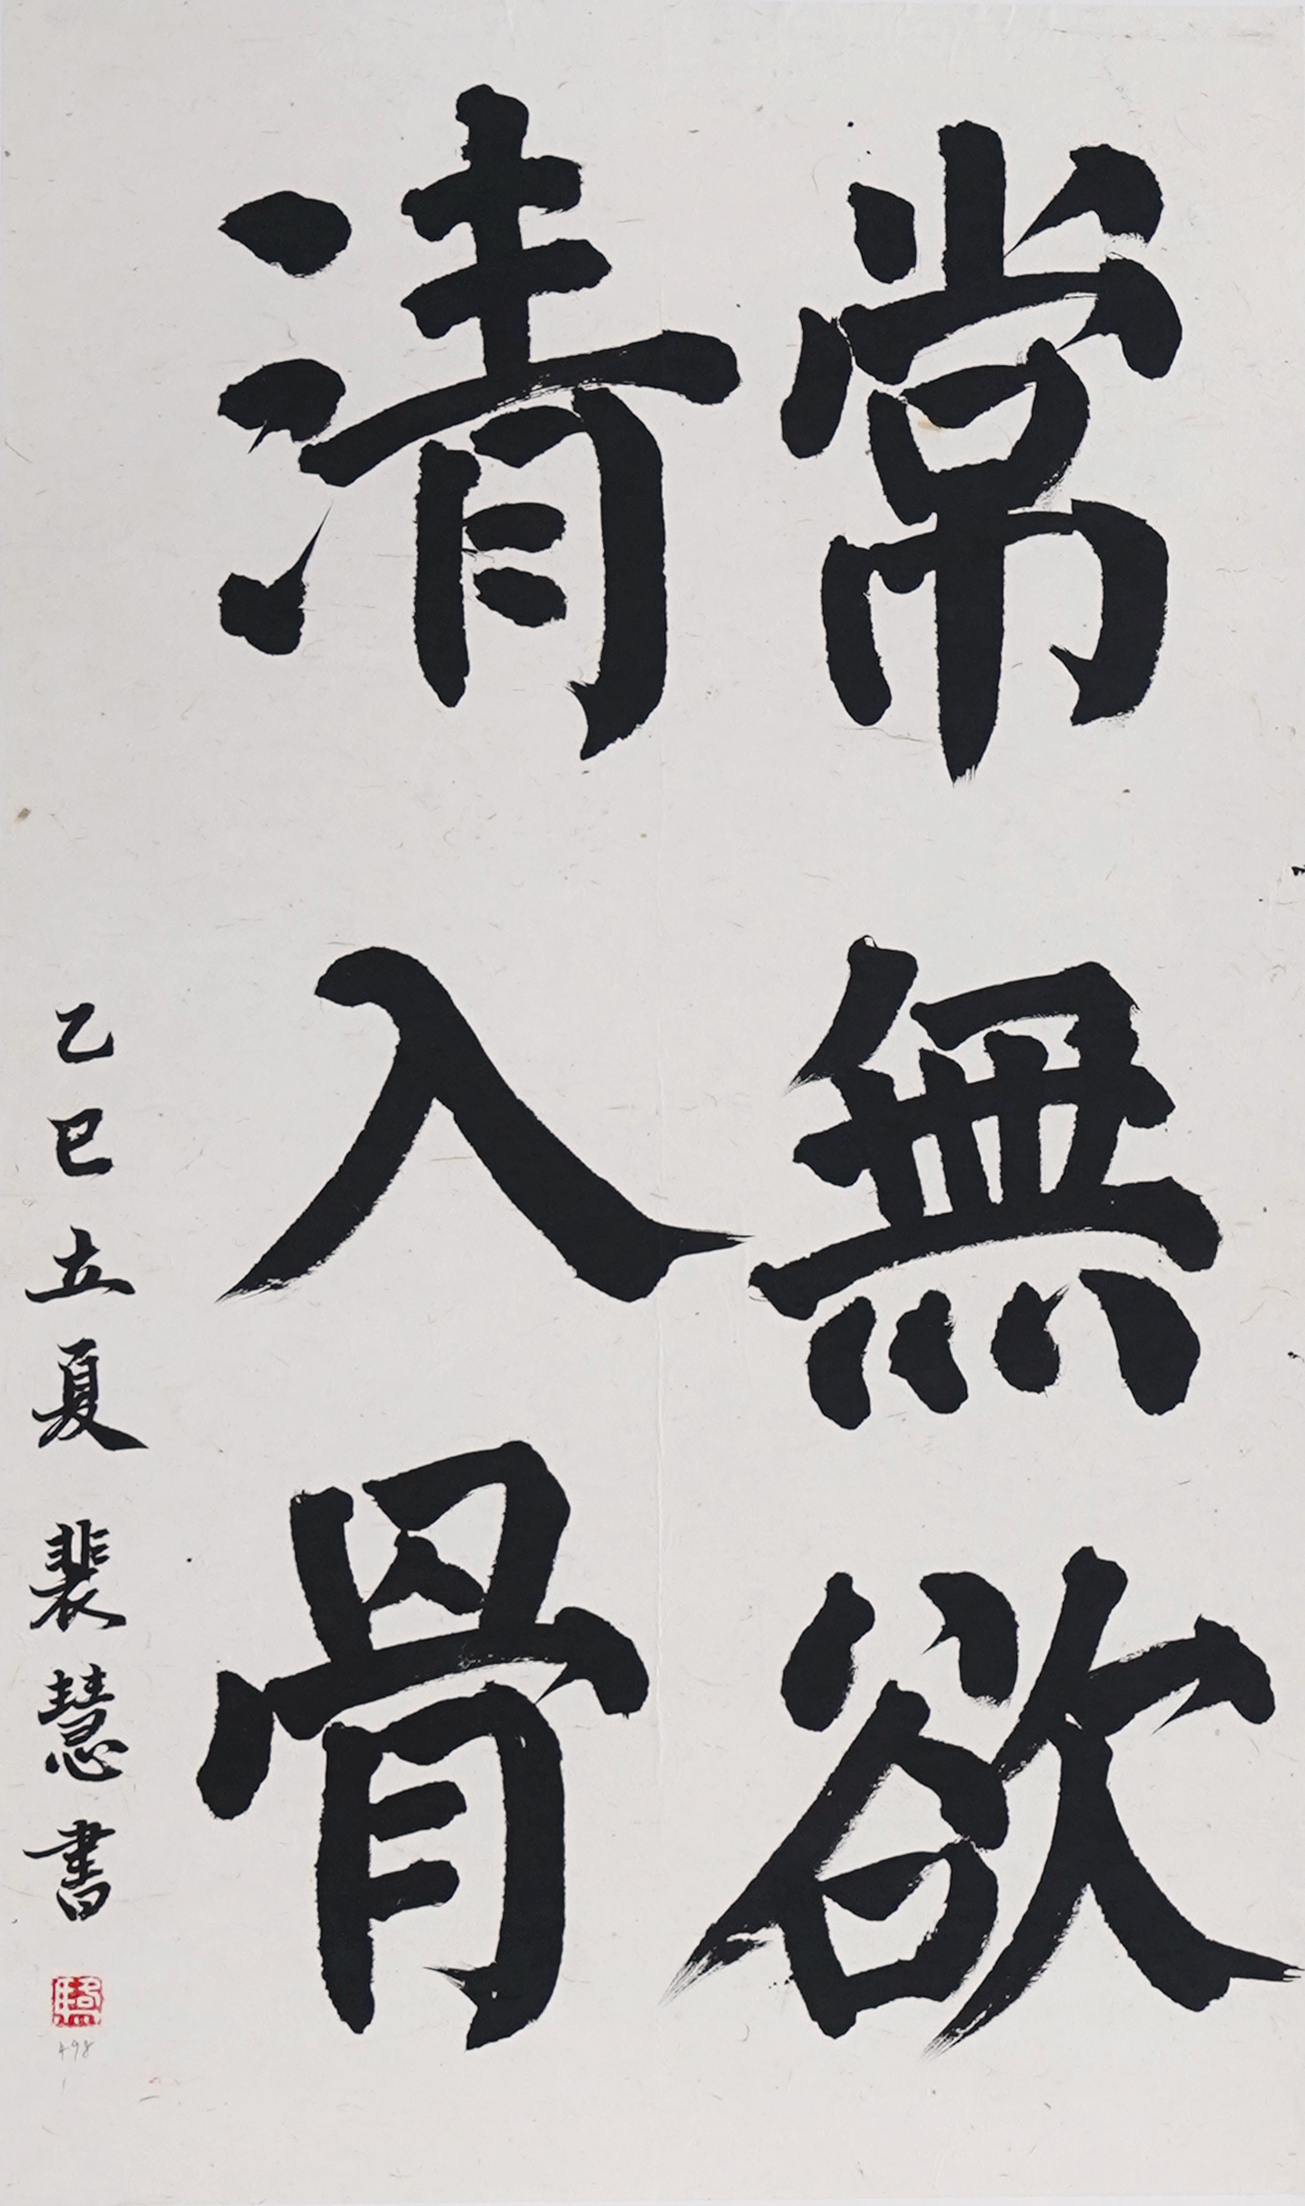 常無欲
清入骨
乙巳立夏裴慧書
498